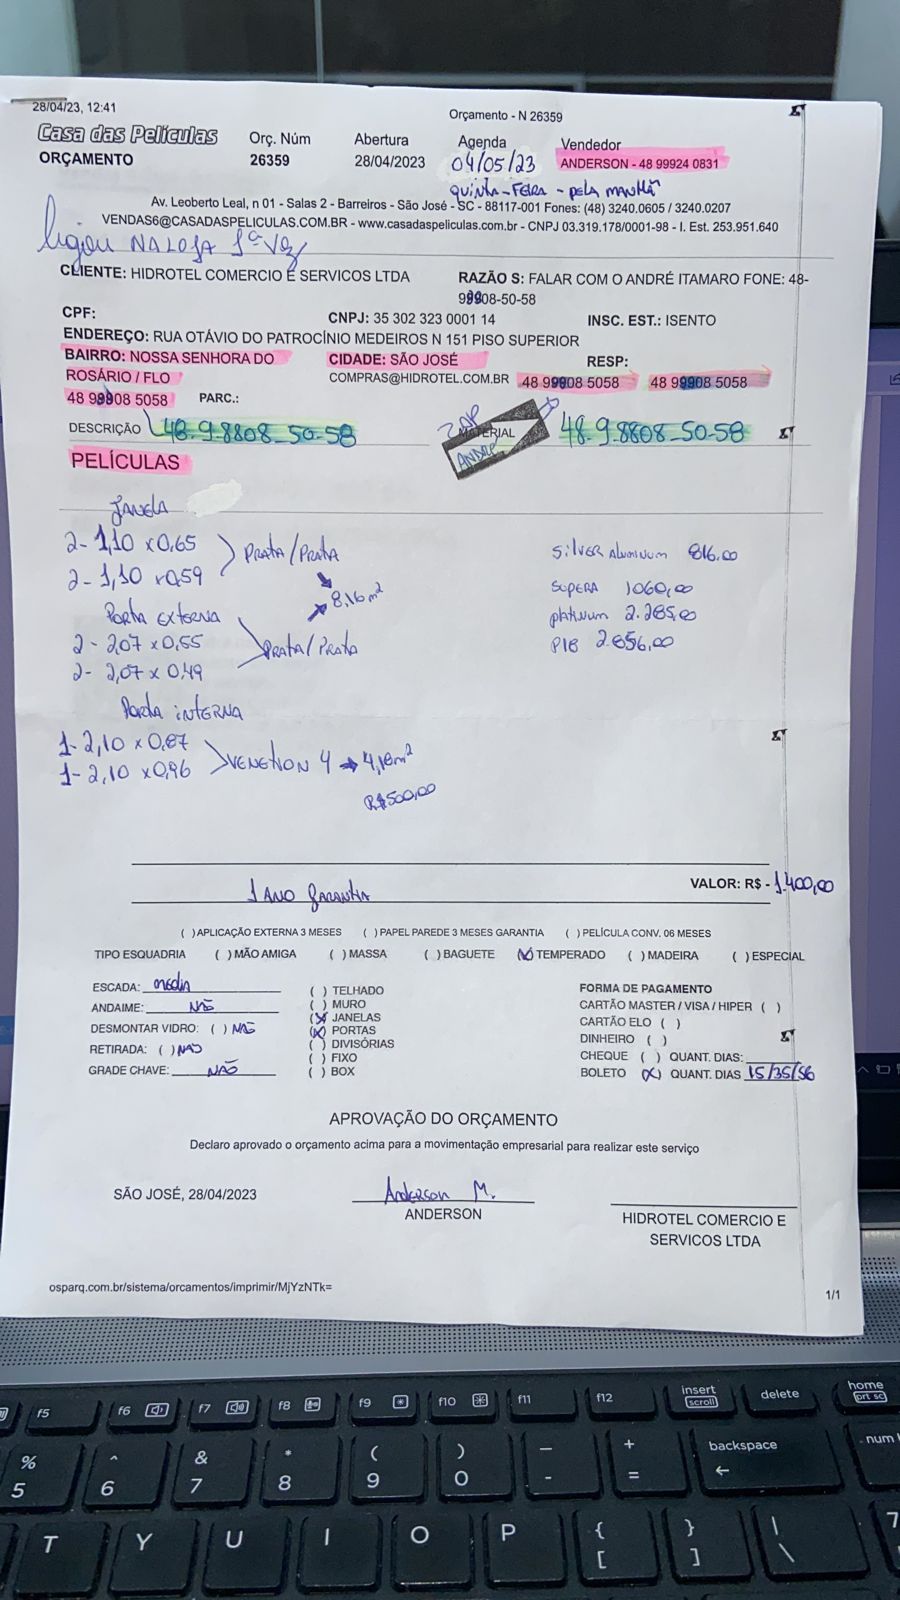 28/04/23, 12:41
Orçamento - N 26359
Casa das Películas
ORÇAMENTO
Orç. Núm
26359
Abertura
28/04/2023
Agenda
04/05/23
Vendedor
ANDERSON - 48 99924 0831
QUINTA-FEIRA - PELA MANHÃ
Av. Leoberto Leal, n 01 - Salas 2 - Barreiros - São José - SC - 88117-001 Fones: (48) 3240.0605 / 3240.0207
VENDAS6@CASADASPELICULAS.COM.BR - www.casadaspeliculas.com.br - CNPJ 03.319.178/0001-98 - I. Est. 253.951.640
ligou NA LOJA 1ª VEZ
CLIENTE: HIDROTEL COMERCIO E SERVICOS LTDA
RAZÃO S: FALAR COM O ANDRÉ ITAMARO FONE: 48-
98808-50-58
CPF:
CNPJ: 35 302 323 0001 14
INSC. EST.: ISENTO
ENDEREÇO: RUA OTÁVIO DO PATROCÍNIO MEDEIROS N 151 PISO SUPERIOR
BAIRRO: NOSSA SENHORA DO
ROSÁRIO / FLO
CIDADE: SÃO JOSÉ
RESP:
COMPRAS@HIDROTEL.COM.BR
48 98808 5058
48 98808 5058
48 98808 5058
PARC.:
DESCRIÇÃO
48.9.8808_50-58
ZAP
MATERIAL
ANDRÉ
48.9.8808_50-58
PELÍCULAS
JANELA
2- 1,10 x 0,65
2- 1,10 x 0,59
PRATA/PRATA
8,16 m²
PORTA EXTERNA
2- 2,07 x 0,55
2- 2,07 x 0,49
PRATA/PRATA
SILVER ALUMINUM 816,00
SUPERA 1060,00
platinum 2.285,00
P18 2.856,00
PORTA INTERNA
1- 2,10 x 0,87
1- 2,10 x 0,96
VENETION 4 → 4,18 m²
R$ 500,00
1 ANO garantia
VALOR: R$ - 1.400,00
( ) APLICAÇÃO EXTERNA 3 MESES ( ) PAPEL PAREDE 3 MESES GARANTIA ( ) PELÍCULA CONV. 06 MESES
TIPO ESQUADRIA ( ) MÃO AMIGA ( ) MASSA ( ) BAGUETE (X) TEMPERADO ( ) MADEIRA ( ) ESPECIAL
ESCADA: média
ANDAIME: NÃO
DESMONTAR VIDRO: ( ) NÃO
RETIRADA: ( ) NÃO
GRADE CHAVE: NÃO
( ) TELHADO
( ) MURO
(X) JANELAS
(X) PORTAS
( ) DIVISÓRIAS
( ) FIXO
( ) BOX
FORMA DE PAGAMENTO
CARTÃO MASTER / VISA / HIPER ( )
CARTÃO ELO ( )
DINHEIRO ( )
CHEQUE ( ) QUANT. DIAS:
BOLETO (X) QUANT. DIAS 15/35/56
APROVAÇÃO DO ORÇAMENTO
Declaro aprovado o orçamento acima para a movimentação empresarial para realizar este serviço
SÃO JOSÉ, 28/04/2023
Anderson M.
ANDERSON
HIDROTEL COMERCIO E
SERVICOS LTDA
osparq.com.br/sistema/orcamentos/imprimir/MjYzNTk=
1/1
f5 f6 f7 f8 f9 f10 f11 f12 insert delete home
scroll prt sc
% ^ & * ( ) — + backspace num
5 6 7 8 9 0 - = ←
T Y U I O P { } | 7
[ ] \